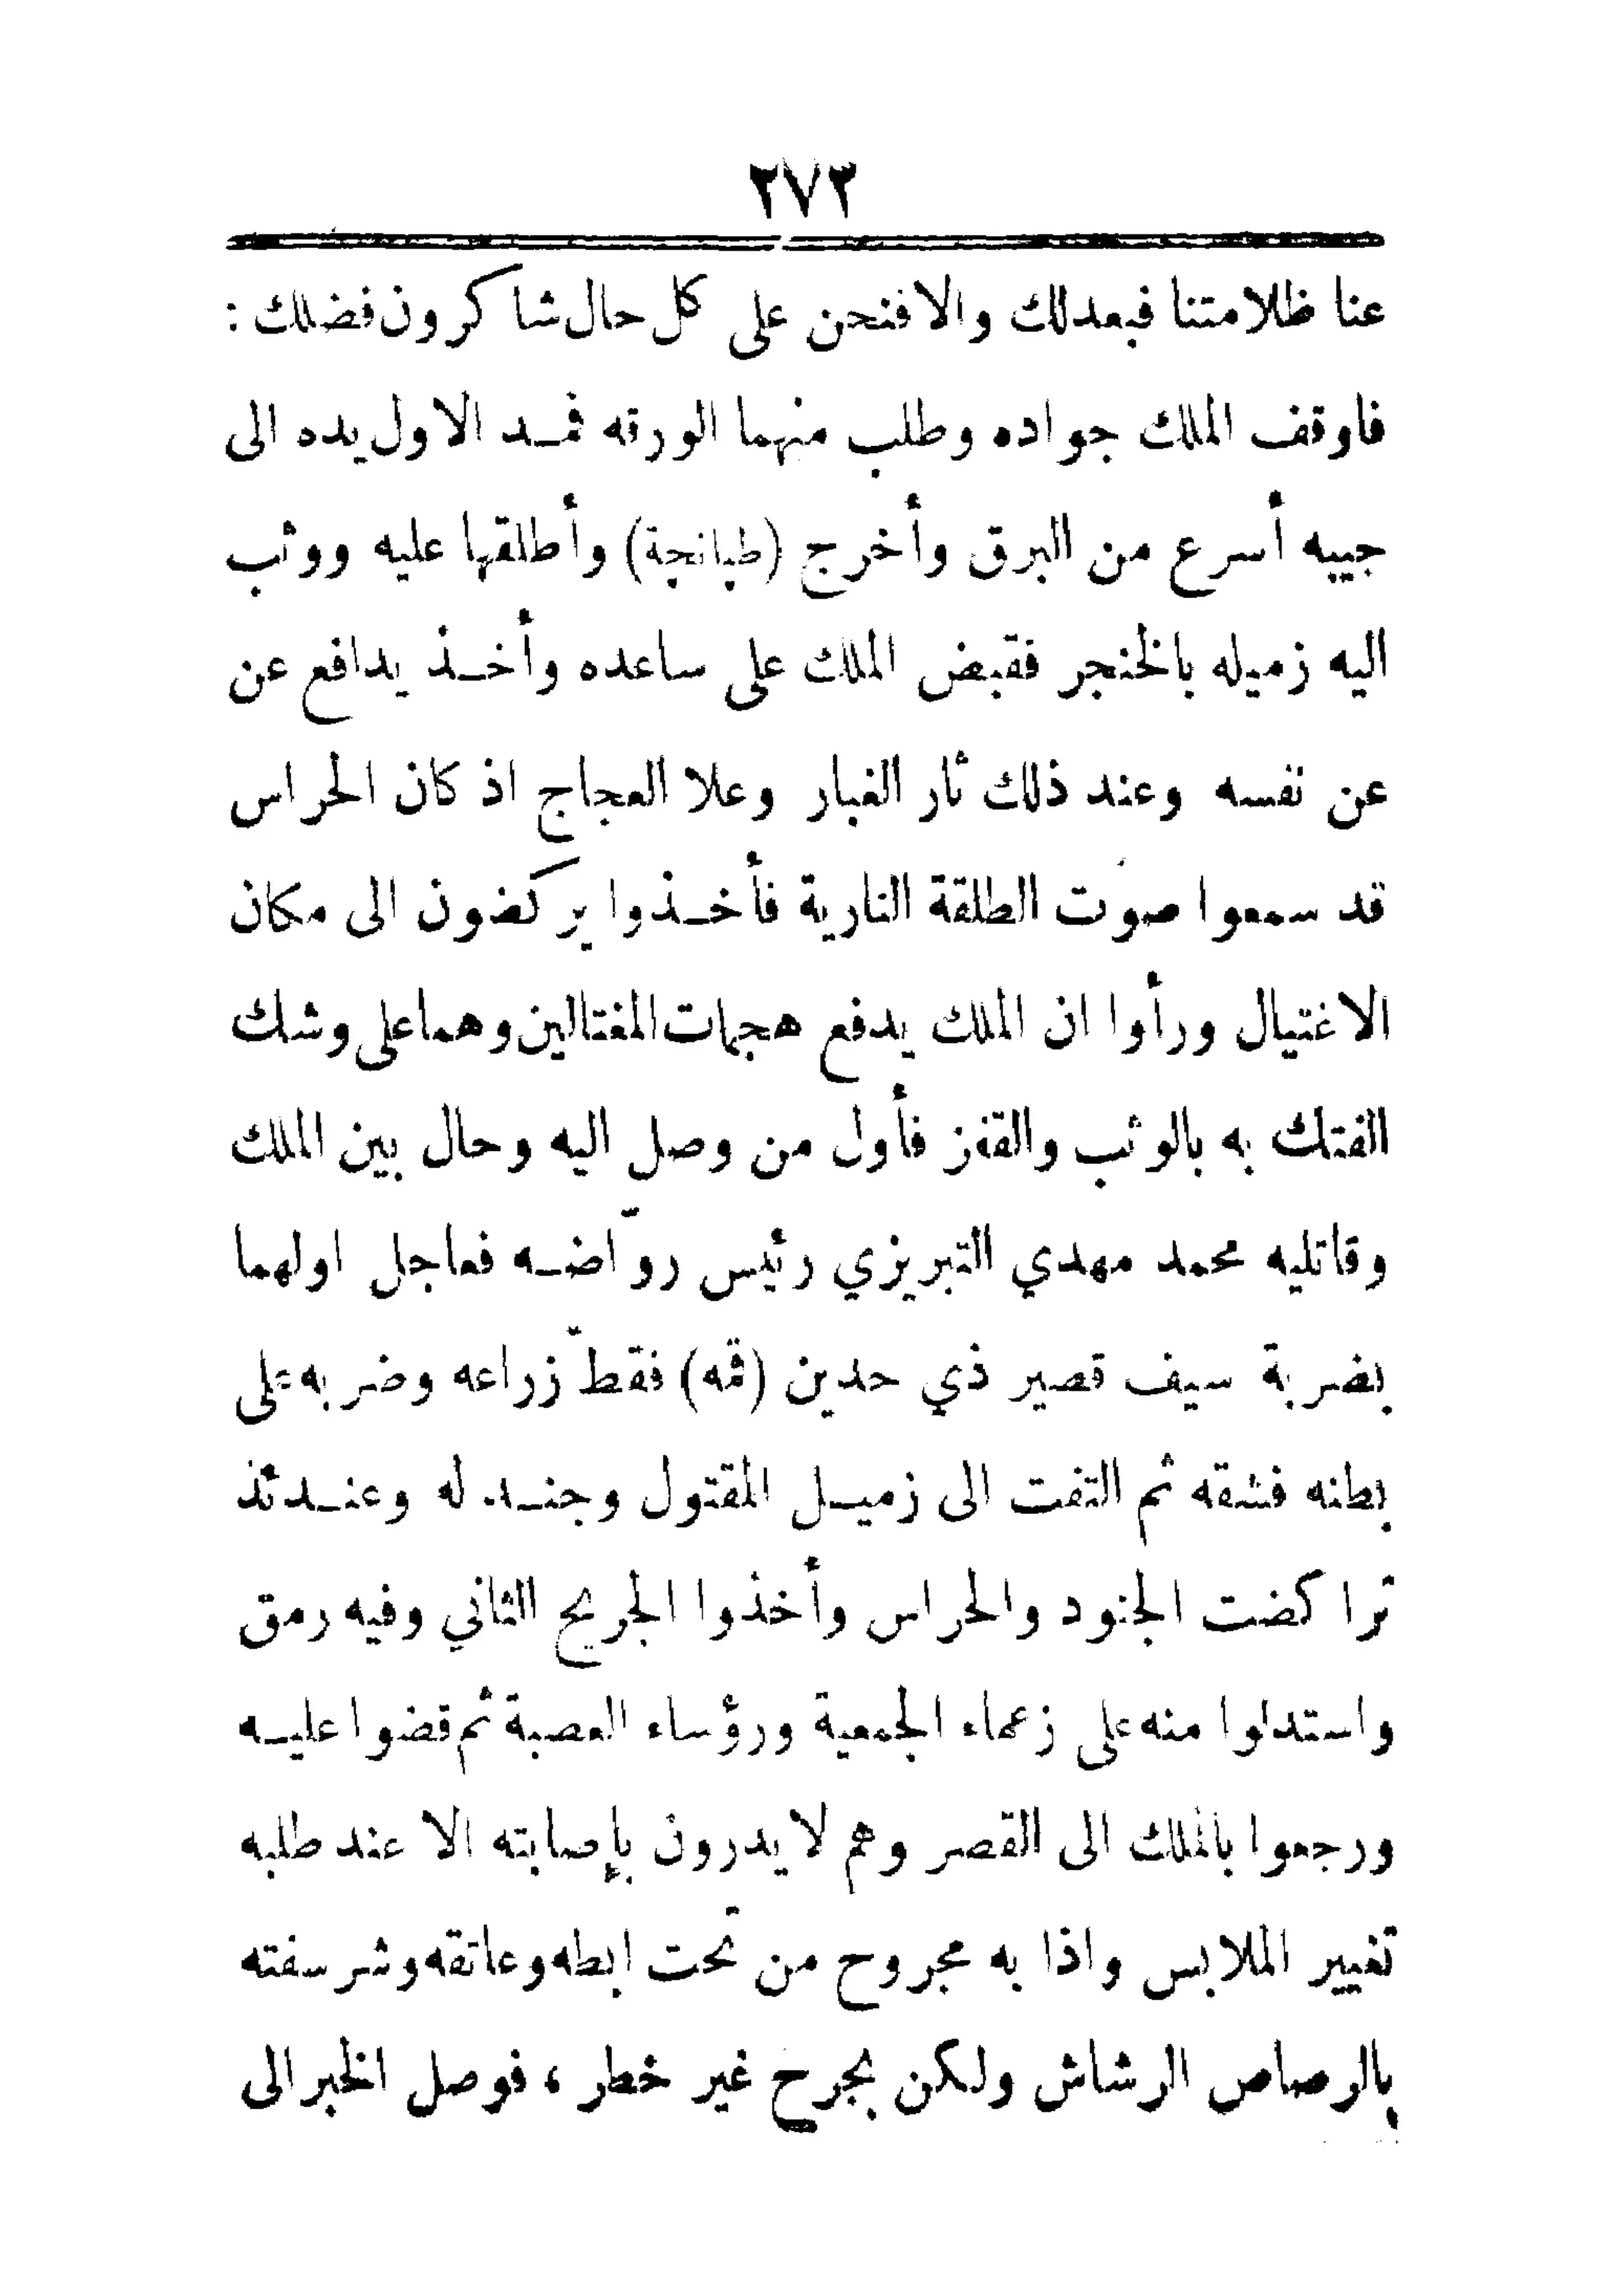 ٢٧٣
عنا ظلامتنا فبعدلك والا فنحن على كل حال شاكرون فضلك :
فاوقف الملك جواده وطلب منهما الورقه فمد الاول يده الى
جيبه أسرع من البرق وأخرج (طبانجة) وأطلقها عليه ووثب
اليه زميله بالخنجر فقبض الملك على ساعده وأخذ يدافع عن
عن نفسه وعند ذلك ثار الغبار وعلا العجاج اذ كان الحراس
قد سمعوا صوت الطلقة النارية فأخذوا يركضون الى مكان
الاغتيال ورأوا ان الملك يدفع هجمات المغتالين وهما على وشك
الفتك به بالوثب والقفز فأول من وصل اليه وحال بين الملك
وقاتليه محمد مهدي التبريزي رئيس روّاضه فعاجل اولهما
بضربة سيف قصير ذي حدين (قمه) فقطّ زراعه وضربه على
بطنه فشقه ثم التفت الى زميل المقتول وجند له وعندئذ
تراكضت الجنود والحراس وأخذوا الجريح الثاني وفيه رمق
واستدلوا منه على زعماء الجمعية ورؤساء العصبة ثم قضوا عليه
ورجعوا بالملك الى القصر وهم لا يدرون بإصابته الا عند طلبه
تغيير الملابس واذا به مجروح من تحت ابطه وعاتقه وشرسفته
بالرصاص الرشاش ولكن بجرح غير خطر ، فوصل الخبر الى